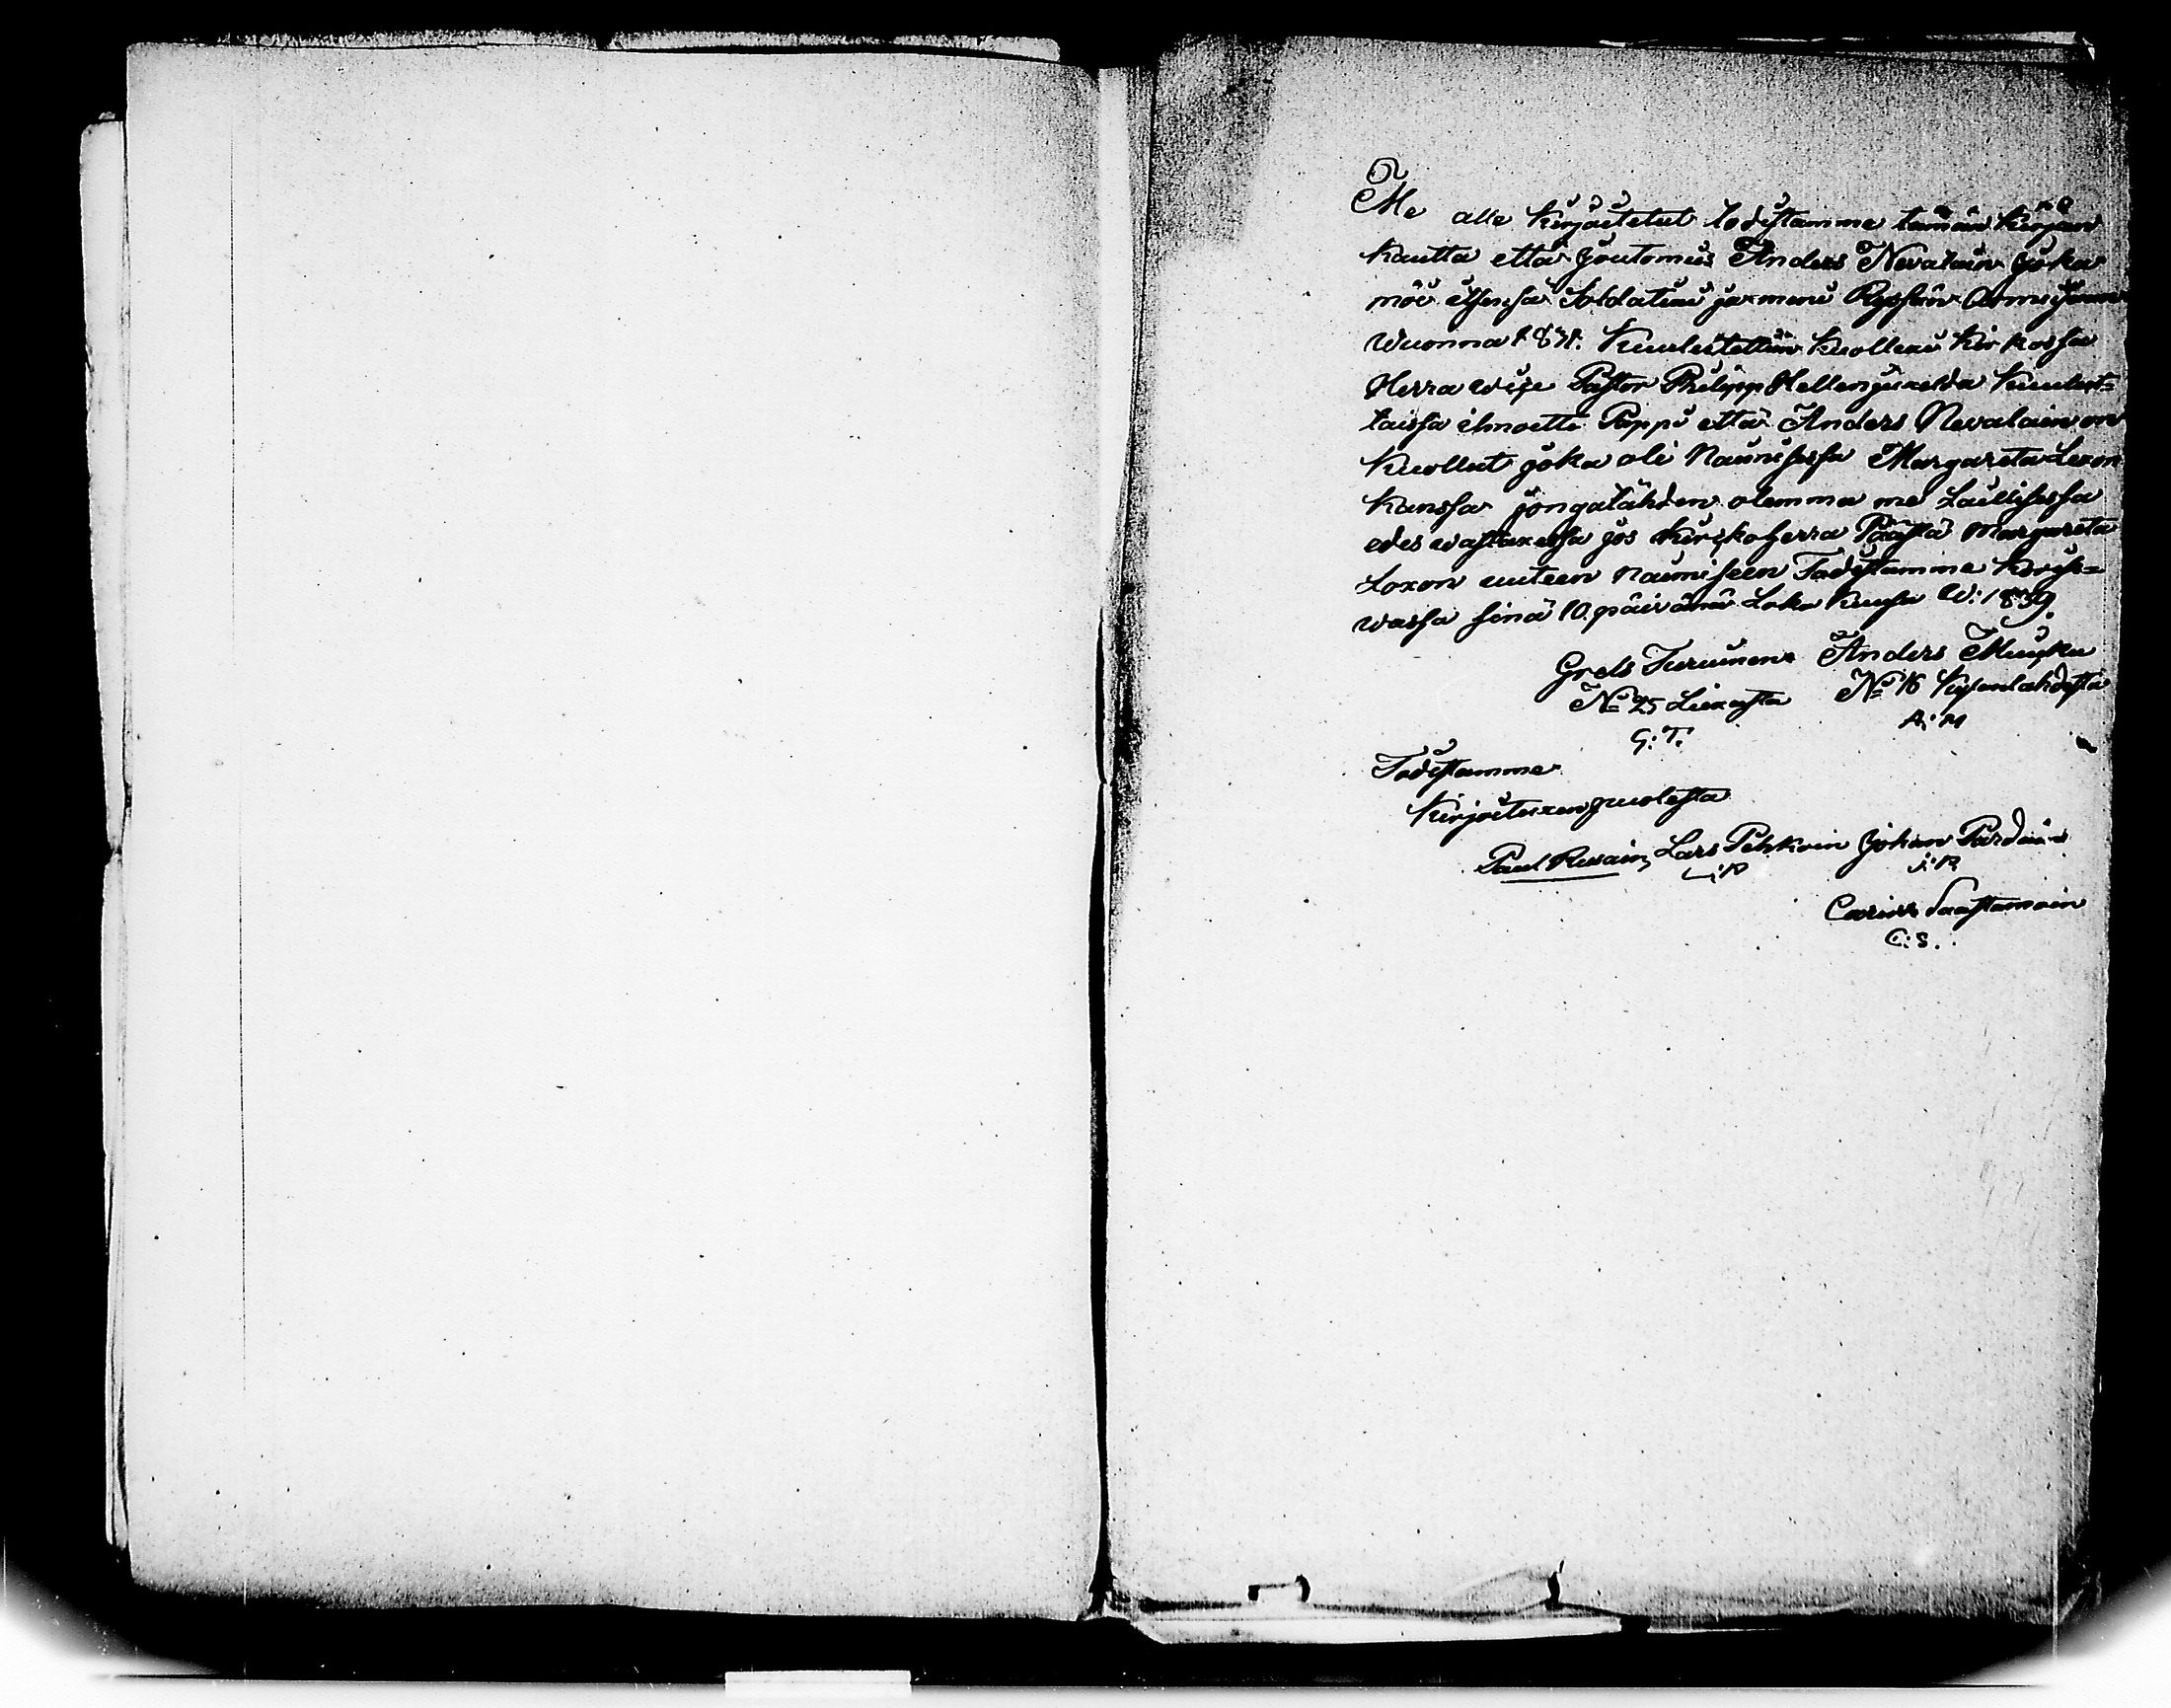 Me alle kirjoitetut todistamme tämän kirjan
kautta että joutomies Anders Nevalain joka
möi itsensä Soldatiixi Ryssän Armeijaan
Wuonna 1831. Kuulutettiin kuollexi kirkossa
Herra wize Pastor Philipp Hellenjuxelda kuulut=
taissa ilmoitti Pappi että Anders Nevalain on
kuollut joka oli Naimisessa Margareta Lexon
kanssa jongatähden olemma me Laillisessa
edeswastaxessa jos kirckoherra Päästä Margareta
Loxon uuteen naimiseen Todistamme
wassa sinä 10. päivänä Loka kuusa W: 1839.
Grels Turuinen Anders Muujku
No 25 Liexasta No 16 kylänlahdesta
G: T. A: M
Todistamme
kirjoituxen puolesta
Paul Rusain Lars Pehkoin Johan Pardain
L: P J: P
Carius Saastamoin
C: S.